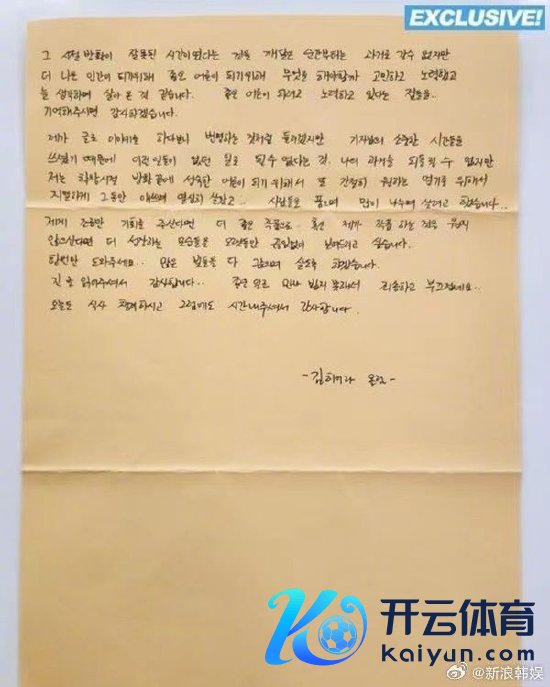 EXCLUSIVE!
그 시절 방황이 잘못된 시간이었다는 것을 깨달은 순간부터는 과거로 갈 수 없지만
더 나은 인간이 되기위해 좋은 어른이 되기위해 무엇을 해야할까 고민하고 노력했고
늘 생각하며 살아온 것 같습니다. 좋은 어른이 되려고 노력하고 있다는 점을..
기억해주시면 감사하겠습니다.
제가 글로 이야기를 하다보니 변명하는 것처럼 들리겠지만 기자님의 소중한 시간들을
쓰셨기 때문에 이런 일들이 없던 일로 될 수 없다는 것. 나의 과거를 되돌릴 수 없지만
저는 학창시절 방황 끝에 성숙한 어른이 되기 위해서 또 간절히 원하는 연기를 위해서
치열하게 그동안 애쓰며 열심히 살았고.. 사람들을 품으며 많이 나누며 살려고 했습니다..
제게 조금만 기회를 주신다면 더 좋은 쪽으로.. 혹 제가 작품 하는 것을
않으신다면 더 성장하는 모습들을 보여드리고 싶습니다.
한번만 도와주세요.. 많은 것들을 다
긴 글 읽어주셔서 감사합니다.. 좋은 일로 만나 뵙지 못해서 죄송하고 부끄럽네요..
오늘도 식사 챙겨하시고 그럼에도 시간내주셔서 감사합니다.
-김히어라 올림-
开云体育
kaiyun.com
@新浪韩娱